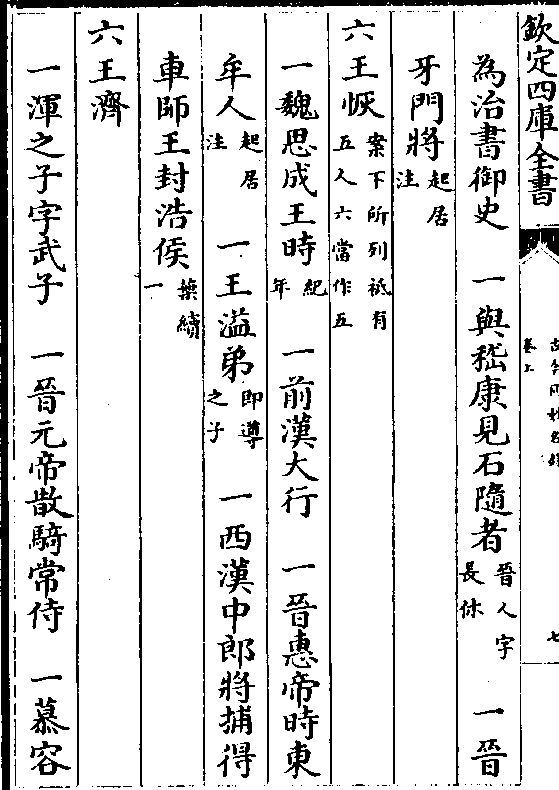 欽定四庫全書
卷上
七
為治書御史　一與嵇康見石隨者晉人字長休　一晉
牙門將起居注
六王恢案下所列祗有五人六當作五
一魏思成王時紀年　一前漢大行　一晉惠帝時東
牟人起居注　一王溢弟即導之子　一西漢中郎將捕得
車師王封浩侯葉續一
六王濟
一渾之子字武子　一晉元帝散騎常侍　一慕容